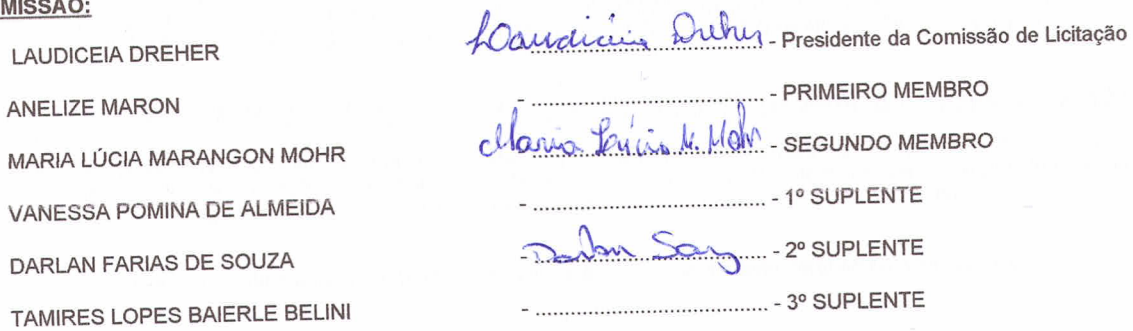 MISSÃO:
LAUDICEIA DREHER Laudiceia Dreher - Presidente da Comissão de Licitação
ANELIZE MARON - ........................................ - PRIMEIRO MEMBRO
MARIA LÚCIA MARANGON MOHR Maria Lúcia M. Mohr - SEGUNDO MEMBRO
VANESSA POMINA DE ALMEIDA - ........................................ - 1º SUPLENTE
DARLAN FARIAS DE SOUZA - Darlan Souz - 2º SUPLENTE
TAMIRES LOPES BAIERLE BELINI - ........................................ - 3º SUPLENTE